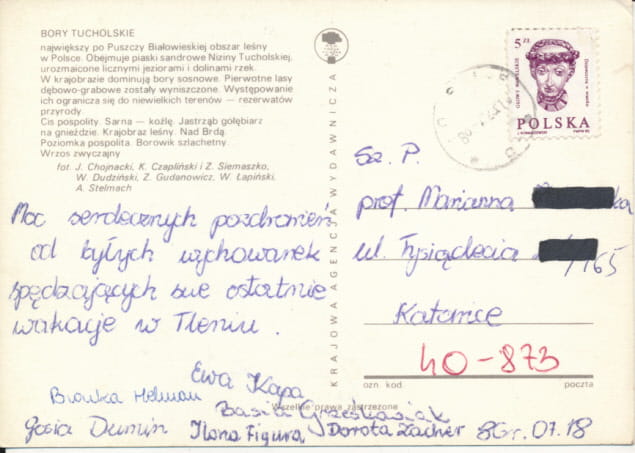 BORY TUCHOLSKIE
największy po Puszczy Białowieskiej obszar leśny
w Polsce. Obejmuje piaski sandrowe Niziny Tucholskiej,
urozmaicone licznymi jeziorami i dolinami rzek.
W krajobrazie dominują bory sosnowe. Pierwotne lasy
dębowo-grabowe zostały wyniszczone. Występowanie
ich ogranicza się do niewielkich terenów — rezerwatów
przyrody.
Cis pospolity. Sarna — koźlę. Jastrząb gołębiarz
na gnieździe. Krajobraz leśny. Nad Brdą.
Poziomka pospolita. Borowik szlachetny.
Wrzos zwyczajny
fot. J. Chojnacki, K. Czapliński i Z. Siemaszko,
W. Dudziński, Z. Gudanowicz, W. Łapiński,
A. Stelmach
Moc serdecznych pozdrowień
od byłych wychowanek
spędzających swe ostatnie
wakacje w Tleniu.
Ewa Kapa
Bianka Helman
Basia Grześkowiak
Gosia Dumin Ilona Figura Dorota Zacher 86r. 07.18
Wszelkie prawa zastrzeżone
KRAJOWA AGENCJA WYDAWNICZA
5 zł
POLSKA
Sz. P.
prof. Marianna ka
ul. Tysiąclecia /165
Katowice
40-873
ozn. kod poczta